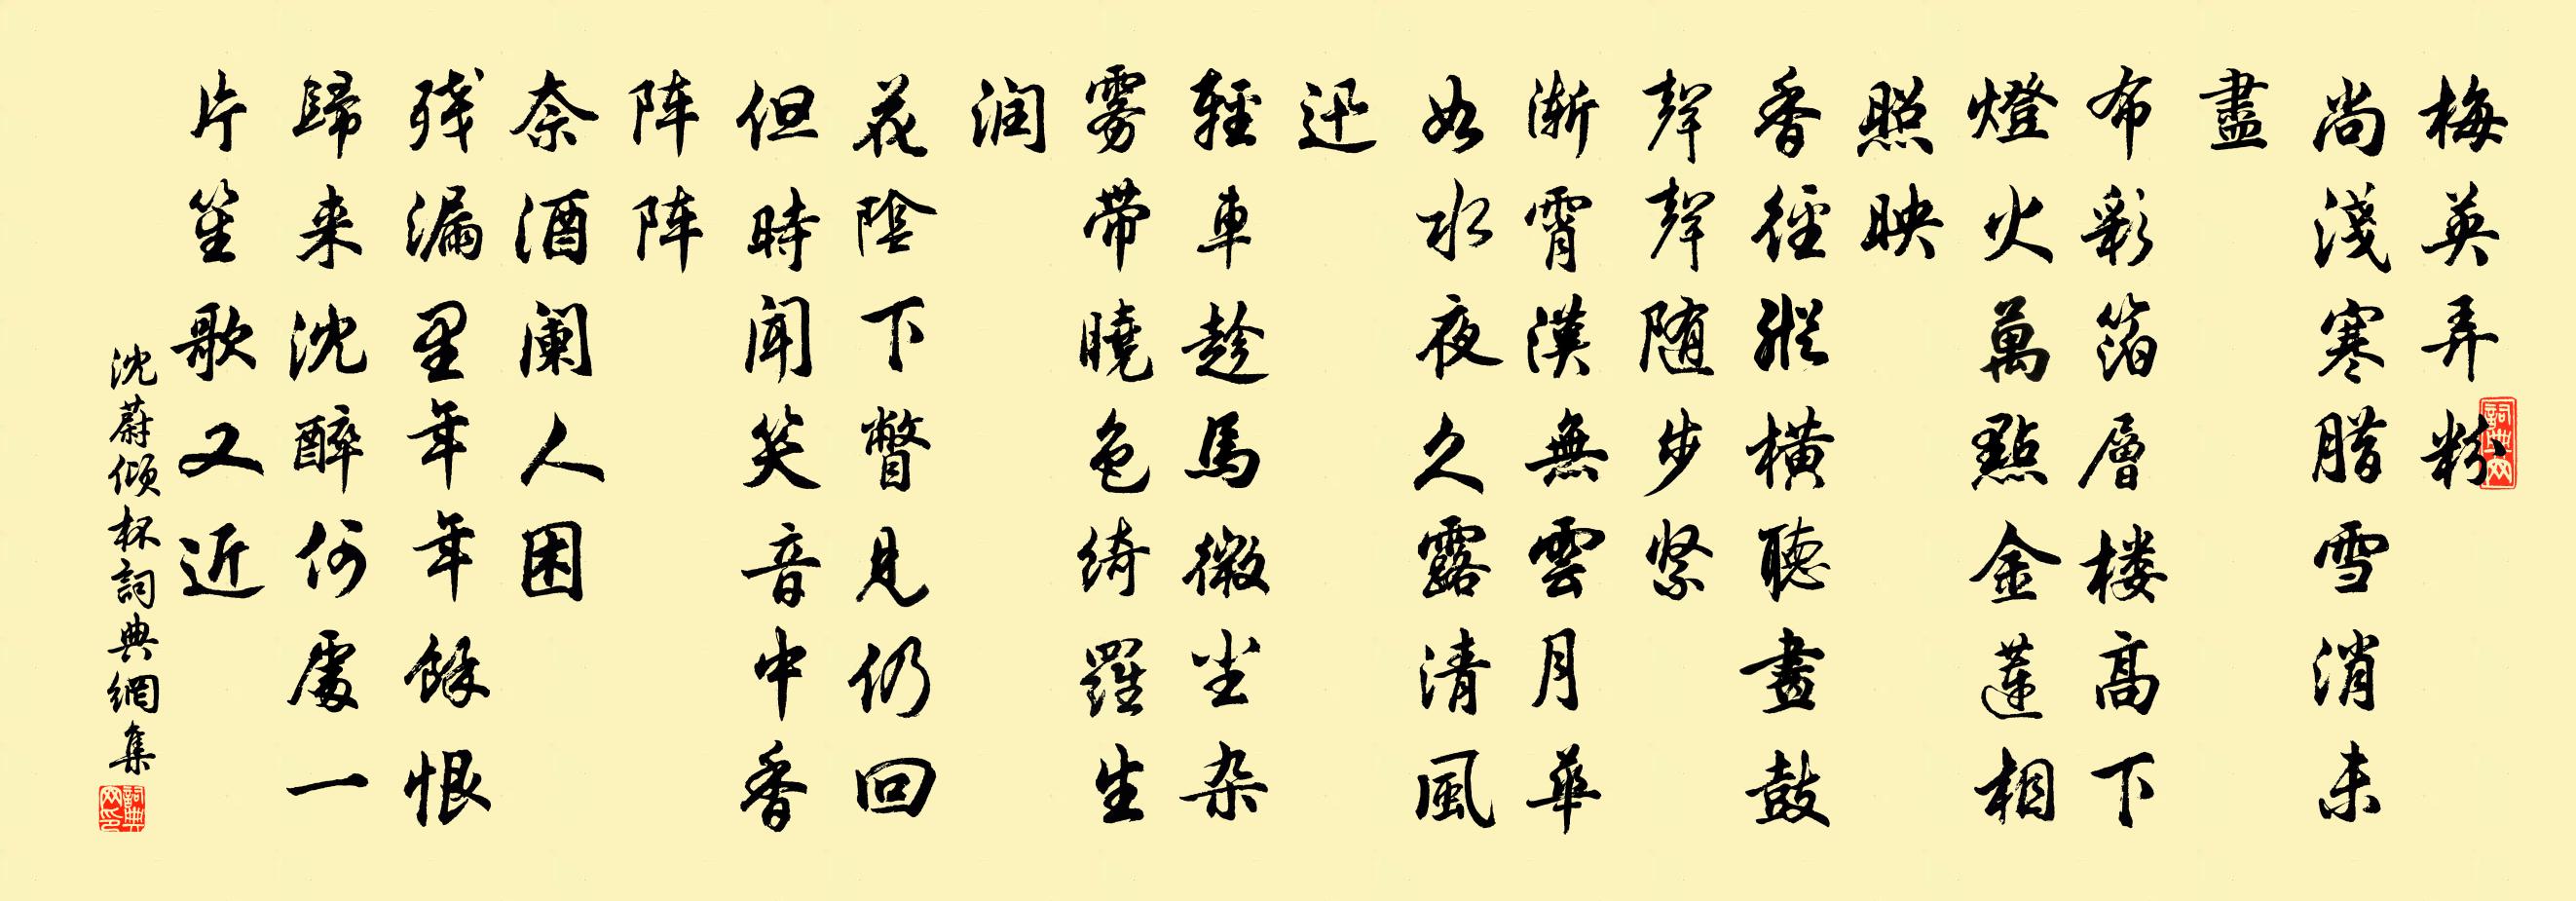 梅英弄粉
尚淺寒腊雪消未
盡
布彩箔層楼高下
燈火萬點金蓮相
照映
香徑縱橫聽畫鼓
聲聲随步紧
渐霄漢無雲月華
如水夜久露清風
迅
輕車趁馬微尘杂
雾带曉色綺羅生
润
花陰下瞥見仍回
但時闻笑音中香
阵阵
奈酒阑人困
残漏里年年餘恨
歸来沈醉何處一
片笙歌又近
沈蔚倾杯詞典網集
詞典网
詞典网印